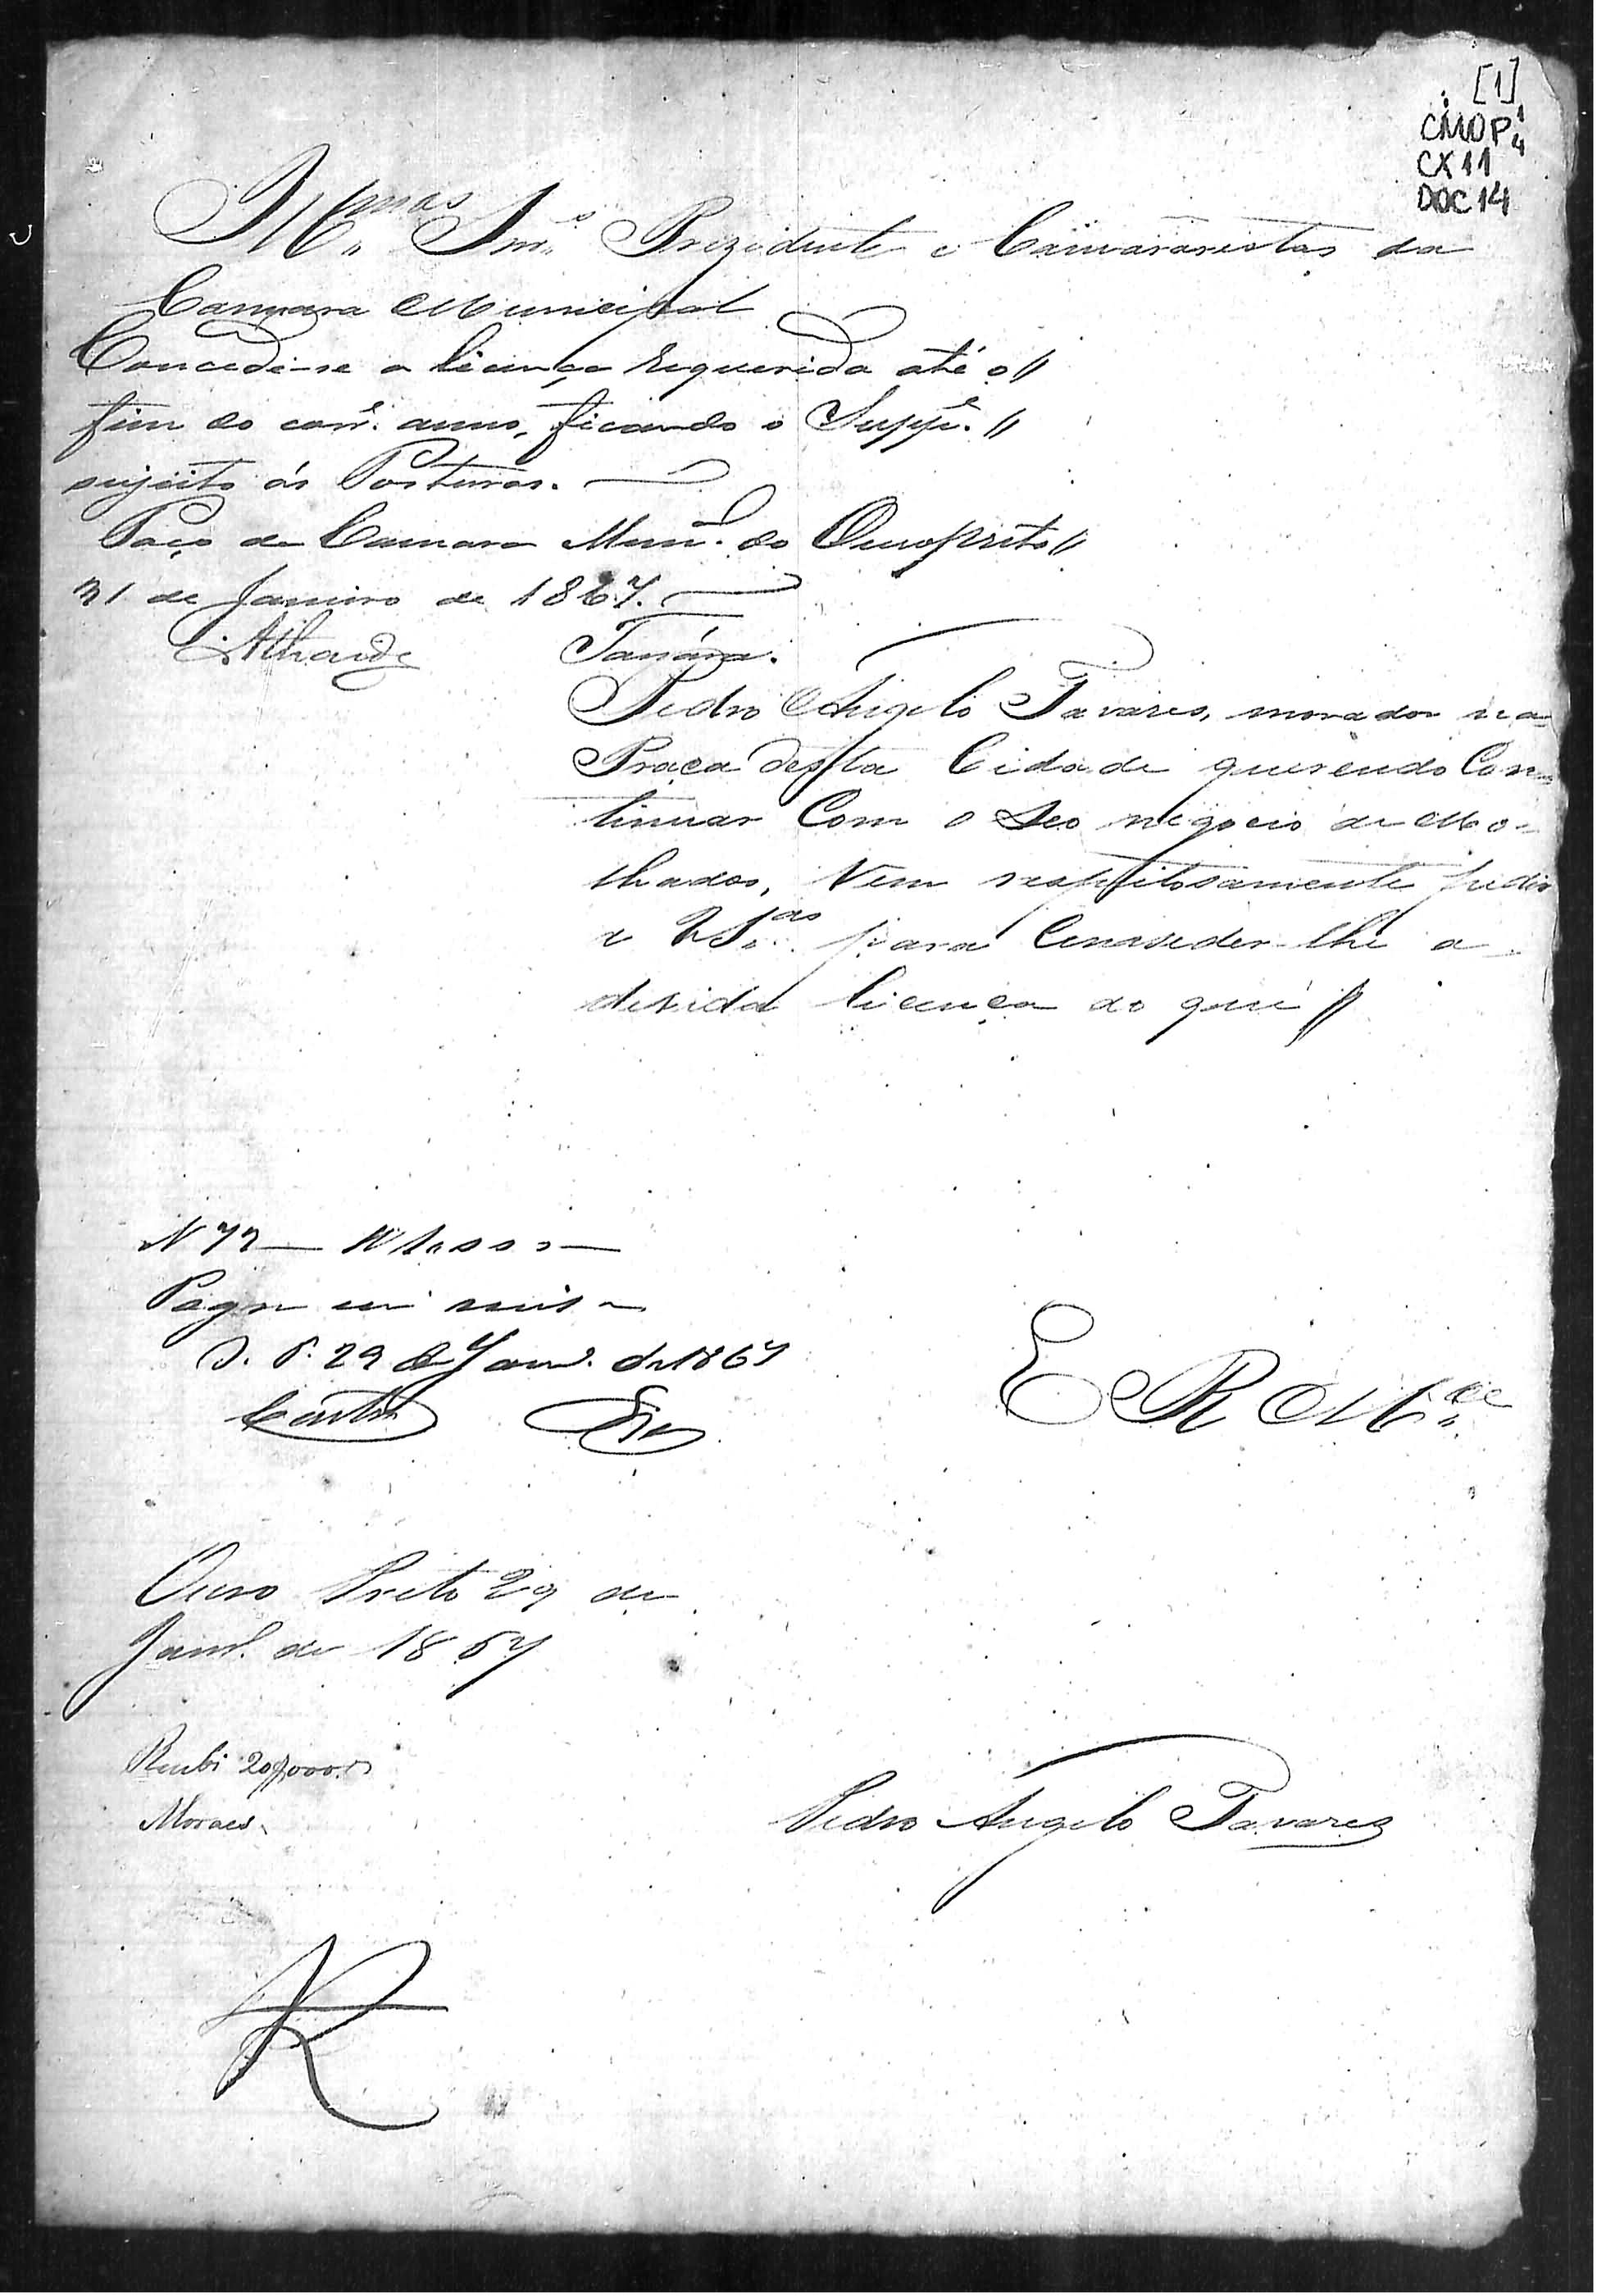 [1]
CMOP 1/4
CX 11
DOC 14
Ill.mos Snr.s Prezidente e Camararistas da
Camara Municipal
Concede-se a licença requerida até o //
fim do corr.e anno, ficando o Supp.e //
sujeito ás Posturas.
Paço da Camara Mun.al do Ouropreto //
31 de Janeiro de 1867.
Pedro Angelo Tavares, morador na
Praça desta Cidade querendo Con-
tinuar Com o Seo negocio de Mo-
lhados, Vem respeitosamente pedir
a V S.as para Conseder-lhe a
devida licença do que //
N 72
Pagou mil reis
O. P. 29 de Janr.o de 1867
Castro
E R M.ce
Ouro Preto 29 de
Janr.o de 1867
Recebi 20$000 rs
Moraes
Pedro Angelo Tavares
R